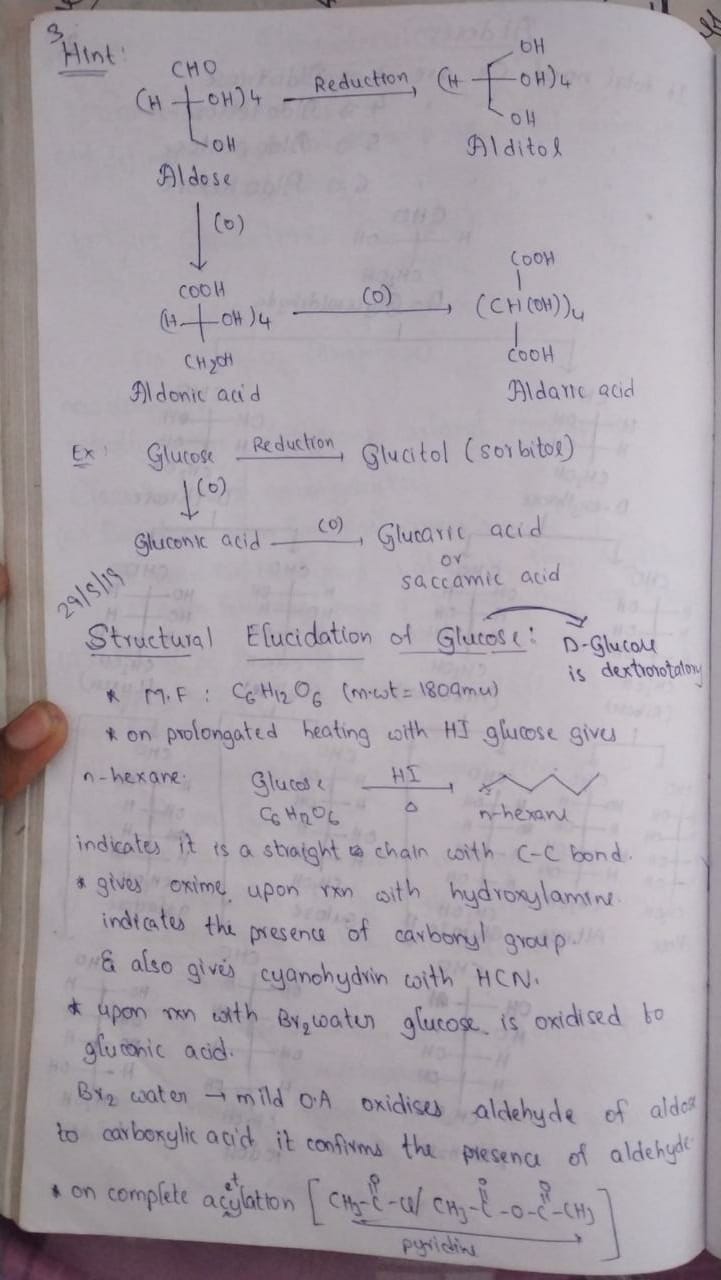 3
Hint:
CHO
(H OH)4
OH
Aldose
Reduction
OH
(H OH)4
OH
Alditol
(O)
COOH
(H OH)4
CH2OH
Aldonic acid
(O)
COOH
(CH(OH))4
COOH
Aldaric acid
Ex: Glucose Reduction Glucitol (sorbitol)
(O)
Gluconic acid (O) Glucaric acid
or
saccamic acid
29/5/19
Structural Elucidation of Glucose: D-Glucose
is dextrorotatory
* M.F : C6H12O6 (m.wt = 180amu)
* on prolongated heating with HI glucose gives
n-hexane. Glucose HI
C6H12O6 Δ n-hexane
indicates it is a straight chain with C-C bond.
* gives oxime upon rxn with hydroxylamine.
indicates the presence of carbonyl group
& also gives cyanohydrin with HCN.
* upon rxn with Br2 water glucose is oxidised to
gluconic acid.
Br2 water → mild O.A oxidises aldehyde of aldose
to carboxylic acid it confirms the presence of aldehyde
* on complete acylation [CH3-C-Cl/ CH3-C-O-C-CH3]
et O O O
pyridine